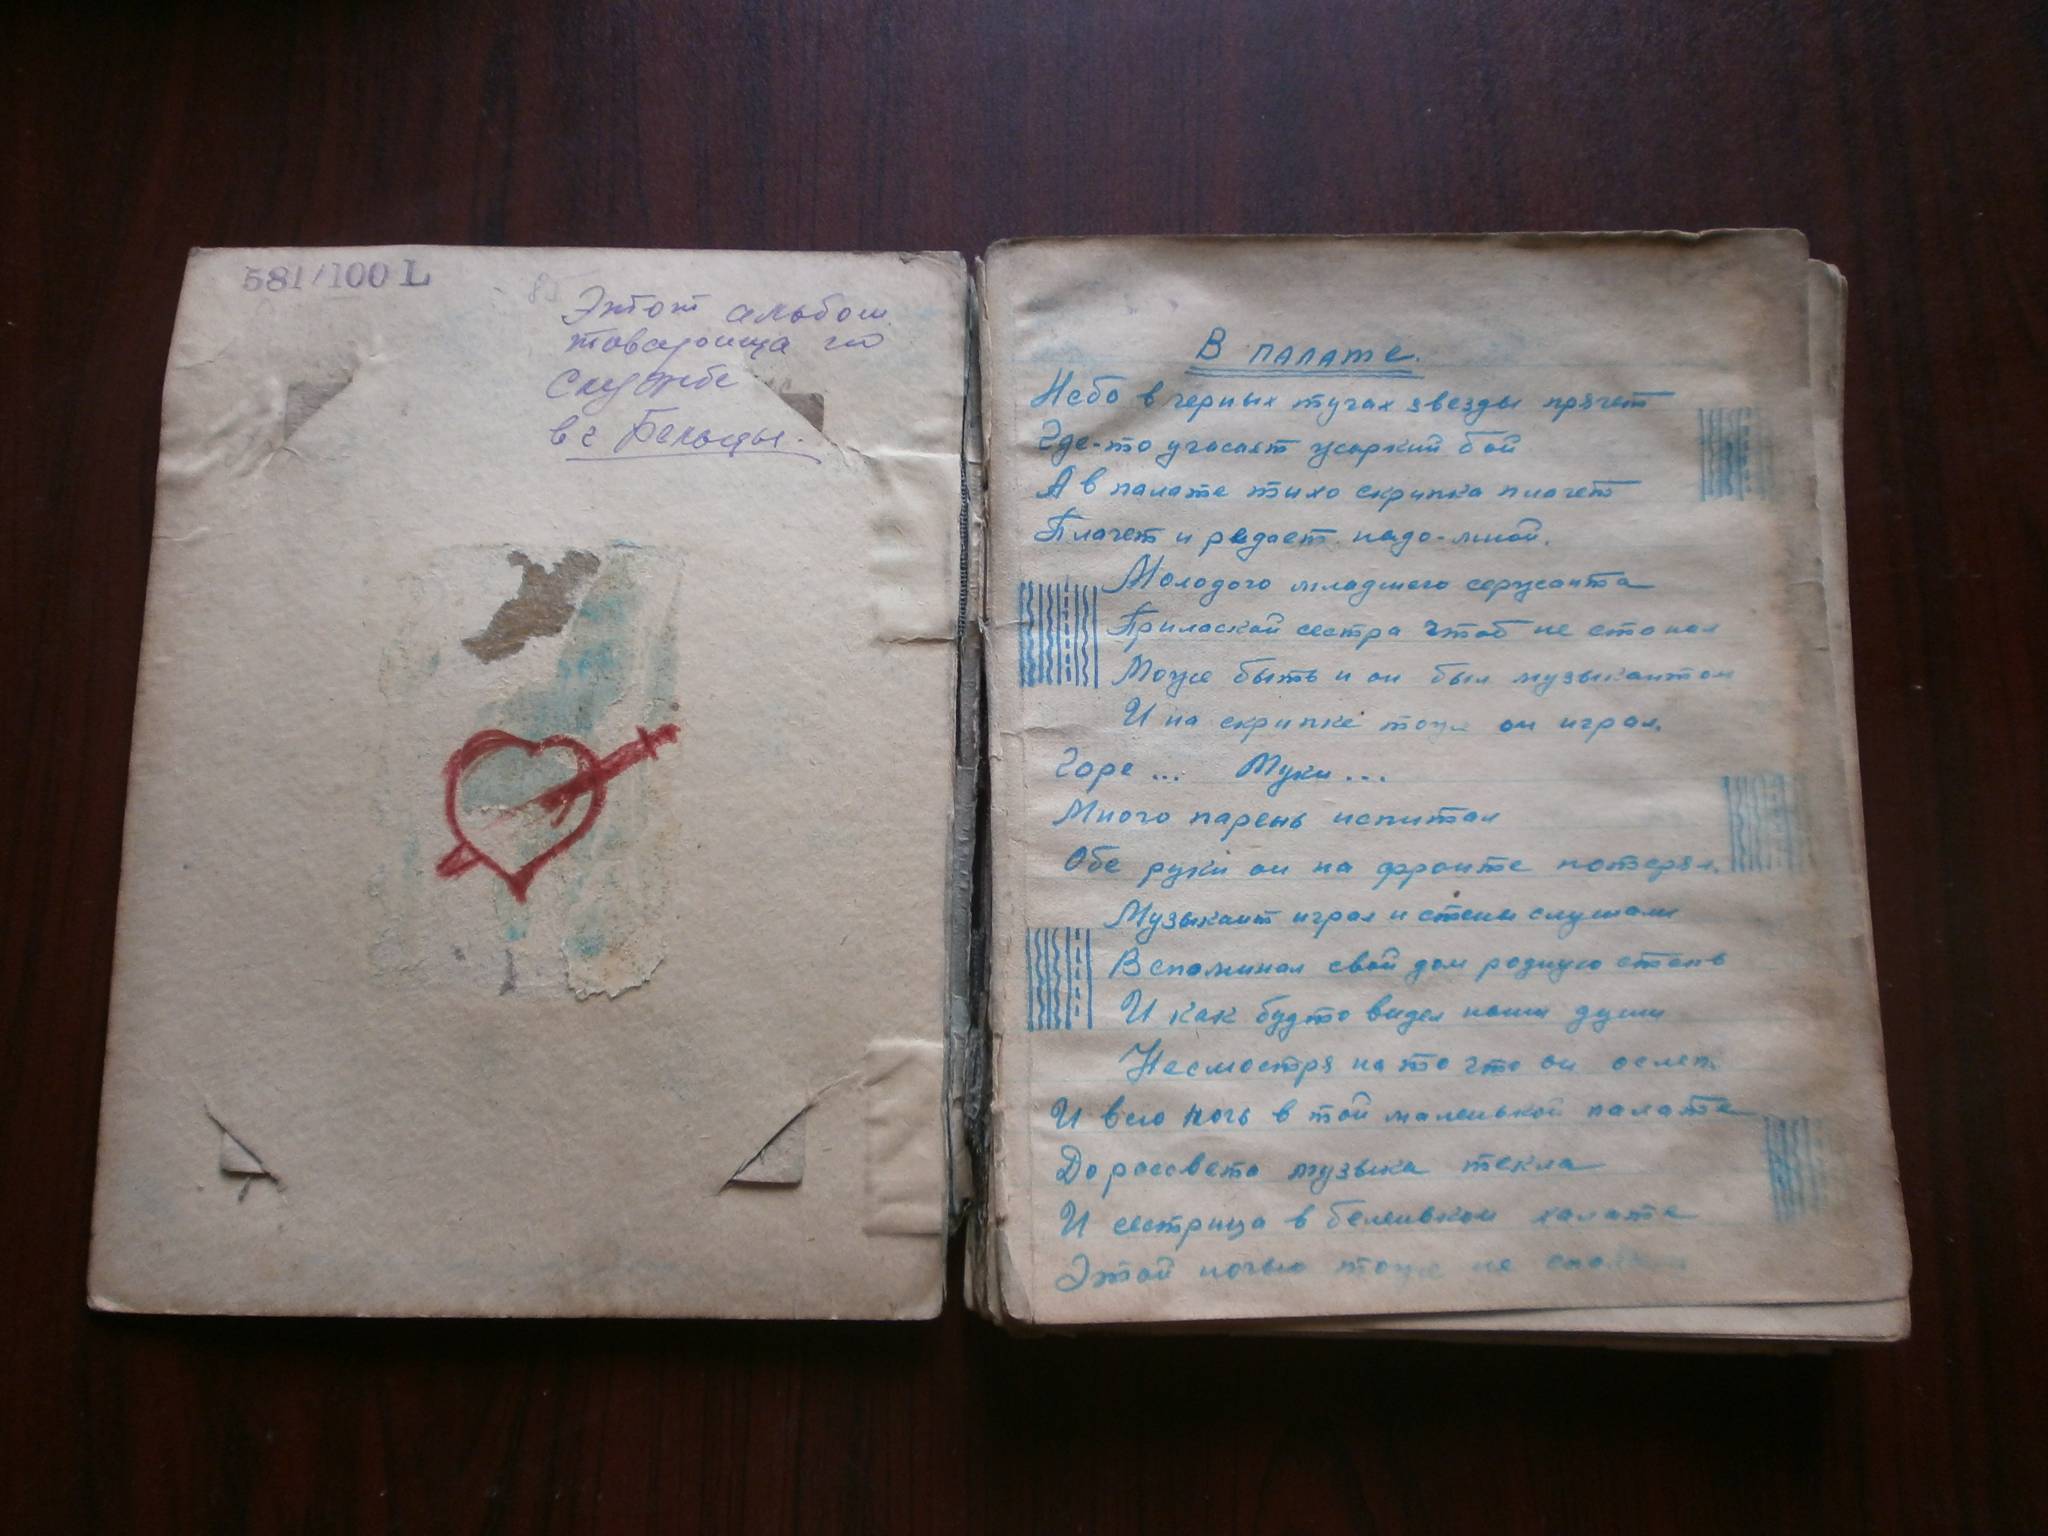 581/100 L
85
Этот альбом
товарища по
службе
в г Бельцы.
В ПАЛАТЕ.
Небо в черных тучах звезды прячет
Где-то угасает жаркий бой
А в палате тихо скрипка плачет
Плачет и рядает надо-мной.
Молодого младшего сержанта
Приласкай сестра чтоб не стонал
Може быть и он был музыкантом
И на скрипке тоже он играл.
Горе... Муки...
Много парень испитал
Обе руки он на фронте потерял.
Музыкант играл и стены слушали
Вспоминал свой дом родную степь
И как будто видел наши души
Несмостря на то что он ослеп.
И всю ночь в той маленькой палате
До рассвета музыка текла
И сестрица в беленьком халате
Этой ночью тоже не спала